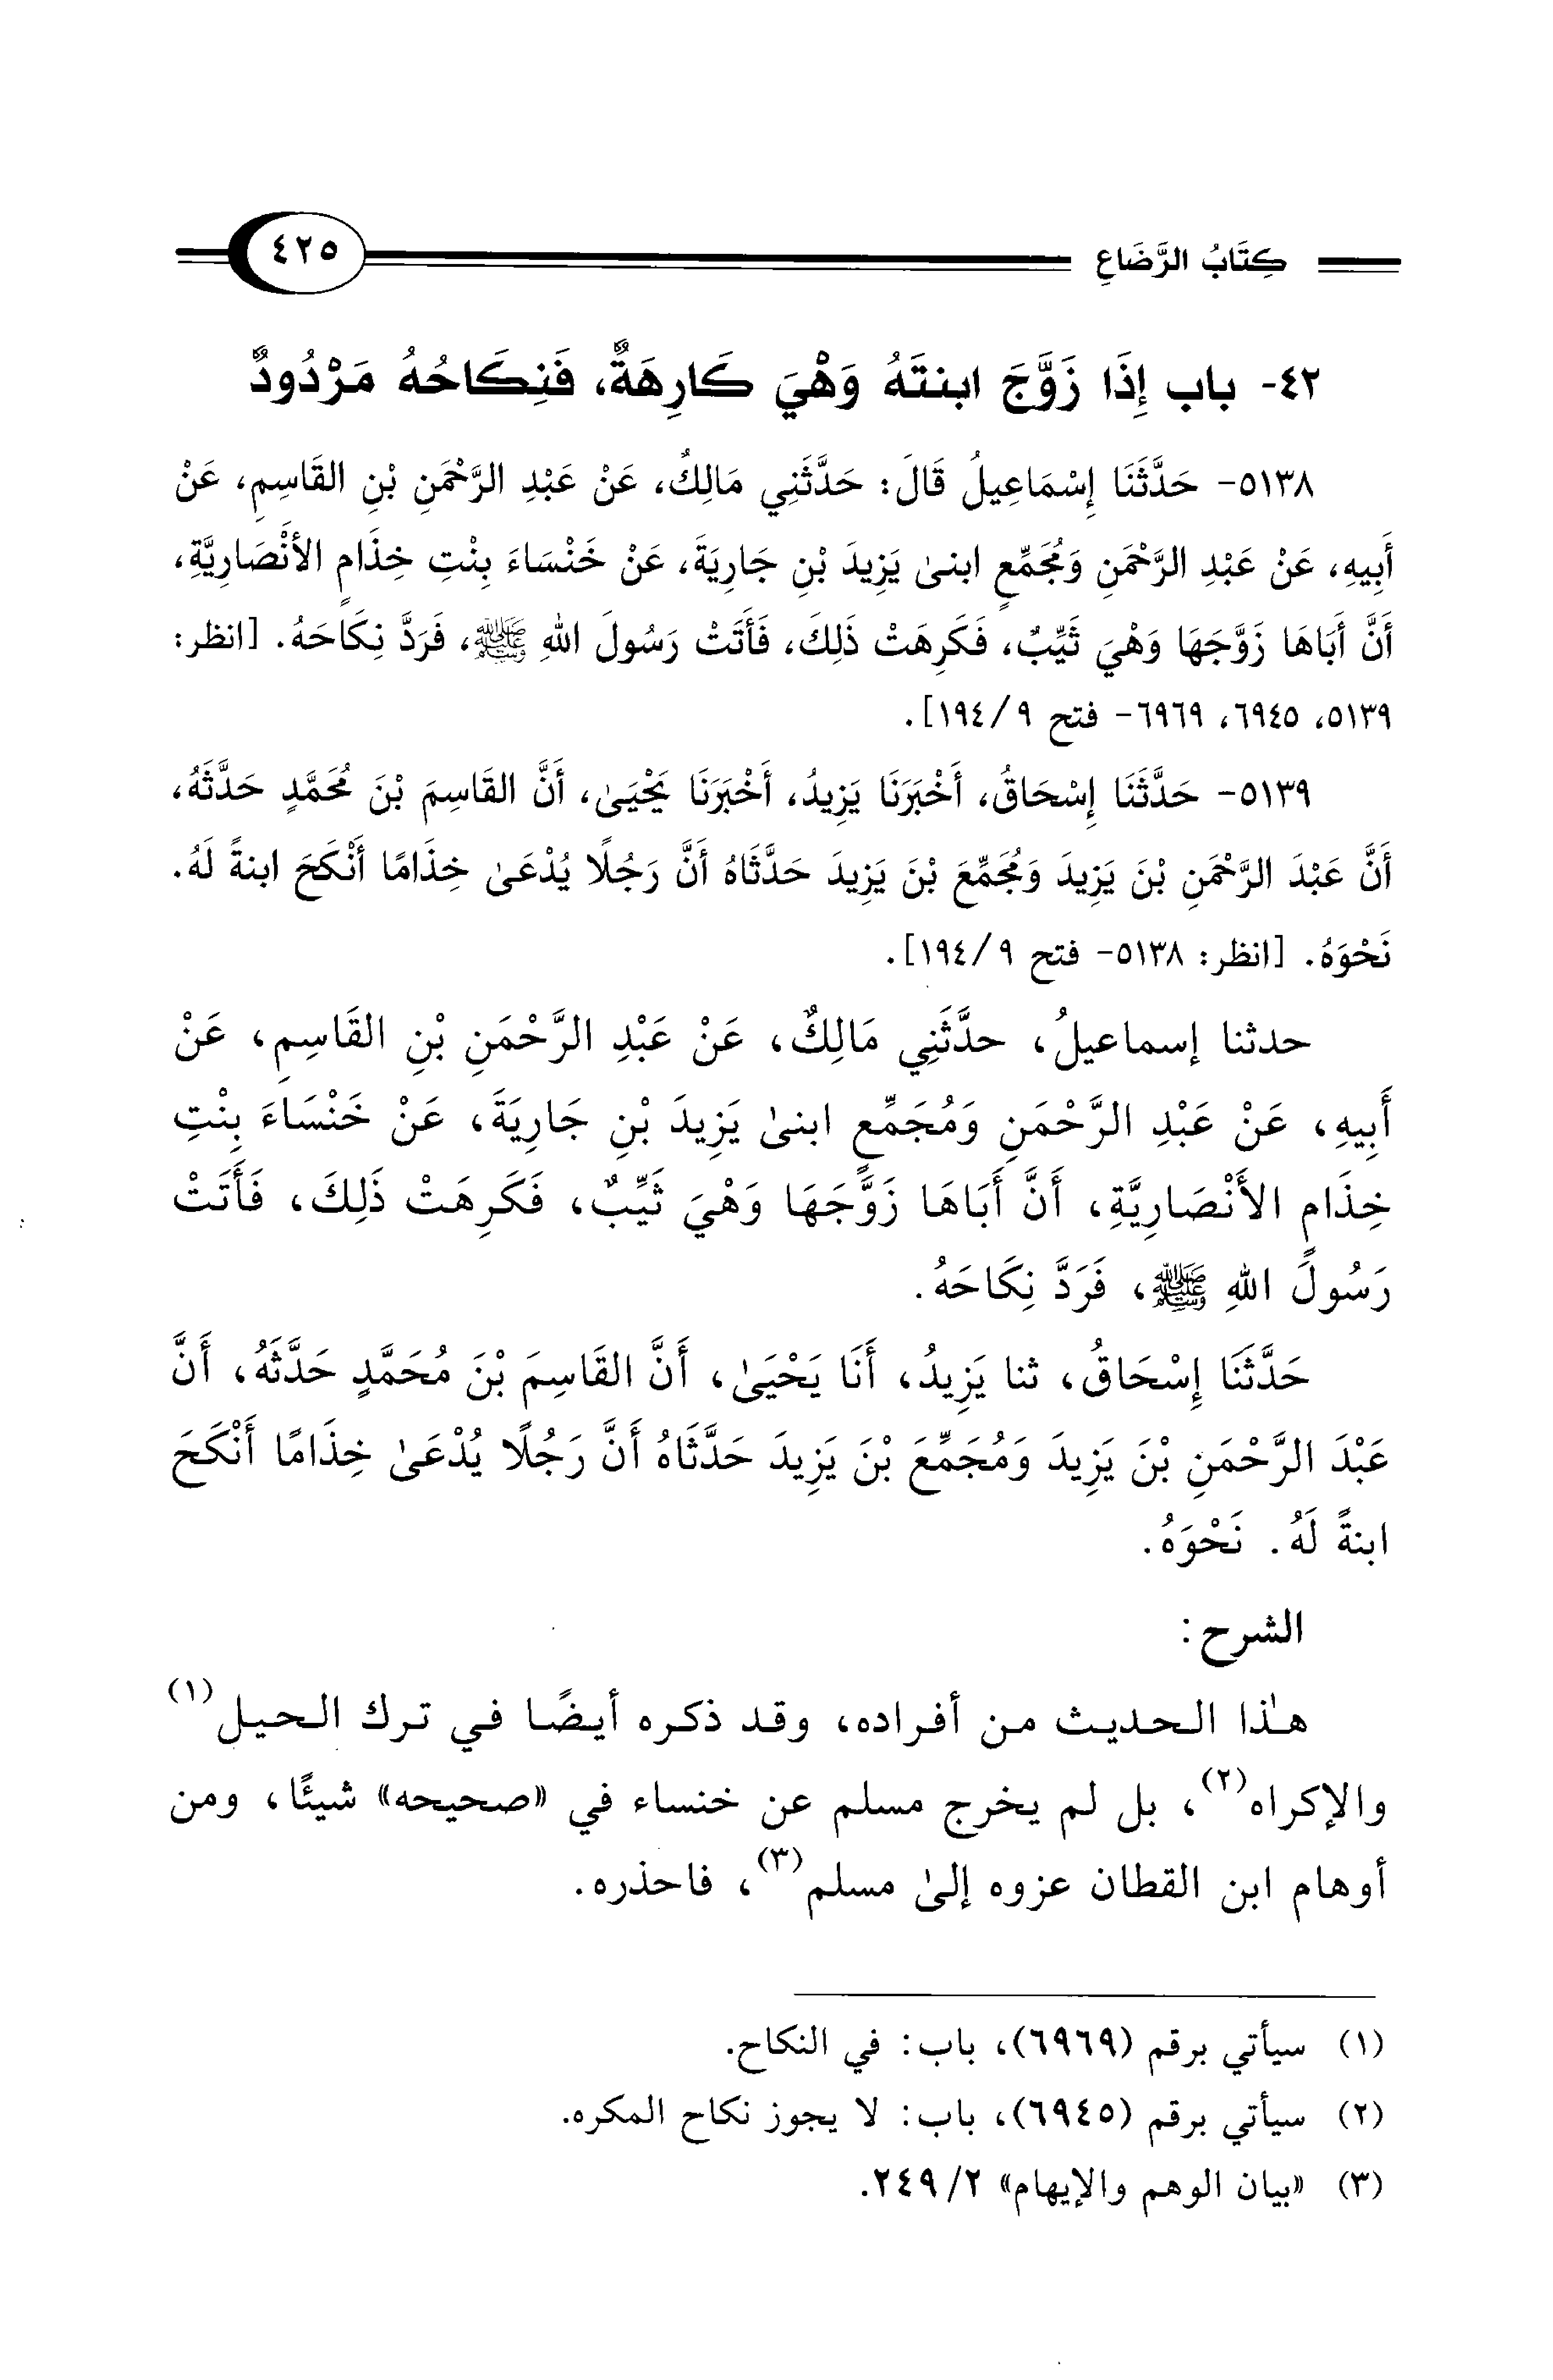 كِتَابُ الرَّضَاعِ ٤٢٥
٤٢- باب إِذَا زَوَّجَ ابنتَهُ وَهْيَ كَارِهَةٌ، فَنِكَاحُهُ مَرْدُودٌ
٥١٣٨- حَدَّثَنَا إِسْمَاعِيلُ قَالَ: حَدَّثَنِي مَالِكٌ، عَنْ عَبْدِ الرَّحْمَنِ بْنِ القَاسِمِ، عَنْ
أَبِيهِ، عَنْ عَبْدِ الرَّحْمَنِ وَمُجَمِّعٍ ابنىْ يَزِيدَ بْنِ جَارِيَةَ، عَنْ خَنْسَاءَ بِنْتِ خِذَامٍ الأَنْصَارِيَّةِ،
أَنَّ أَبَاهَا زَوَّجَهَا وَهْيَ ثَيِّبٌ، فَكَرِهَتْ ذَلِكَ، فَأَتَتْ رَسُولَ اللهِ ﷺ، فَرَدَّ نِكَاحَهُ. [انظر:
٥١٣٩، ٦٩٤٥، ٦٩٦٩- فتح ٩/ ١٩٤].
٥١٣٩- حَدَّثَنَا إِسْحَاقُ، أَخْبَرَنَا يَزِيدُ، أَخْبَرَنَا يَحْيَىٰ، أَنَّ القَاسِمَ بْنَ مُحَمَّدٍ حَدَّثَهُ،
أَنَّ عَبْدَ الرَّحْمَنِ بْنَ يَزِيدَ وَمُجَمِّعَ بْنَ يَزِيدَ حَدَّثَاهُ أَنَّ رَجُلًا يُدْعَىٰ خِذَامًا أَنْكَحَ ابنةً لَهُ.
نَحْوَهُ. [انظر: ٥١٣٨- فتح ٩/ ١٩٤].
حدثنا إسماعيلُ، حدَّثَنِي مَالِكٌ، عَنْ عَبْدِ الرَّحْمَنِ بْنِ القَاسِمِ، عَنْ
أَبِيهِ، عَنْ عَبْدِ الرَّحْمَنِ وَمُجَمِّعٍ ابنىْ يَزِيدَ بْنِ جَارِيَةَ، عَنْ خَنْسَاءَ بِنْتِ
خِذَامٍ الأَنْصَارِيَّةِ، أَنَّ أَبَاهَا زَوَّجَهَا وَهْيَ ثَيِّبٌ، فَكَرِهَتْ ذَلِكَ، فَأَتَتْ
رَسُولَ اللهِ ﷺ، فَرَدَّ نِكَاحَهُ.
حَدَّثَنَا إِسْحَاقُ، ثنا يَزِيدُ، أَنَا يَحْيَىٰ، أَنَّ القَاسِمَ بْنَ مُحَمَّدٍ حَدَّثَهُ، أَنَّ
عَبْدَ الرَّحْمَنِ بْنَ يَزِيدَ وَمُجَمِّعَ بْنَ يَزِيدَ حَدَّثَاهُ أَنَّ رَجُلًا يُدْعَىٰ خِذَامًا أَنْكَحَ
ابنةً لَهُ. نَحْوَهُ.
الشرح:
هذا الحديث من أفراده، وقد ذكره أيضًا في ترك الحيل(١)
والإكراه(٢)، بل لم يخرج مسلم عن خنساء في «صحيحه» شيئًا، ومن
أوهام ابن القطان عزوه إلىٰ مسلم(٣)، فاحذره.
(١) سيأتي برقم (٦٩٦٩)، باب: في النكاح.
(٢) سيأتي برقم (٦٩٤٥)، باب: لا يجوز نكاح المكره.
(٣) «بيان الوهم والإيهام» ٢/ ٢٤٩.